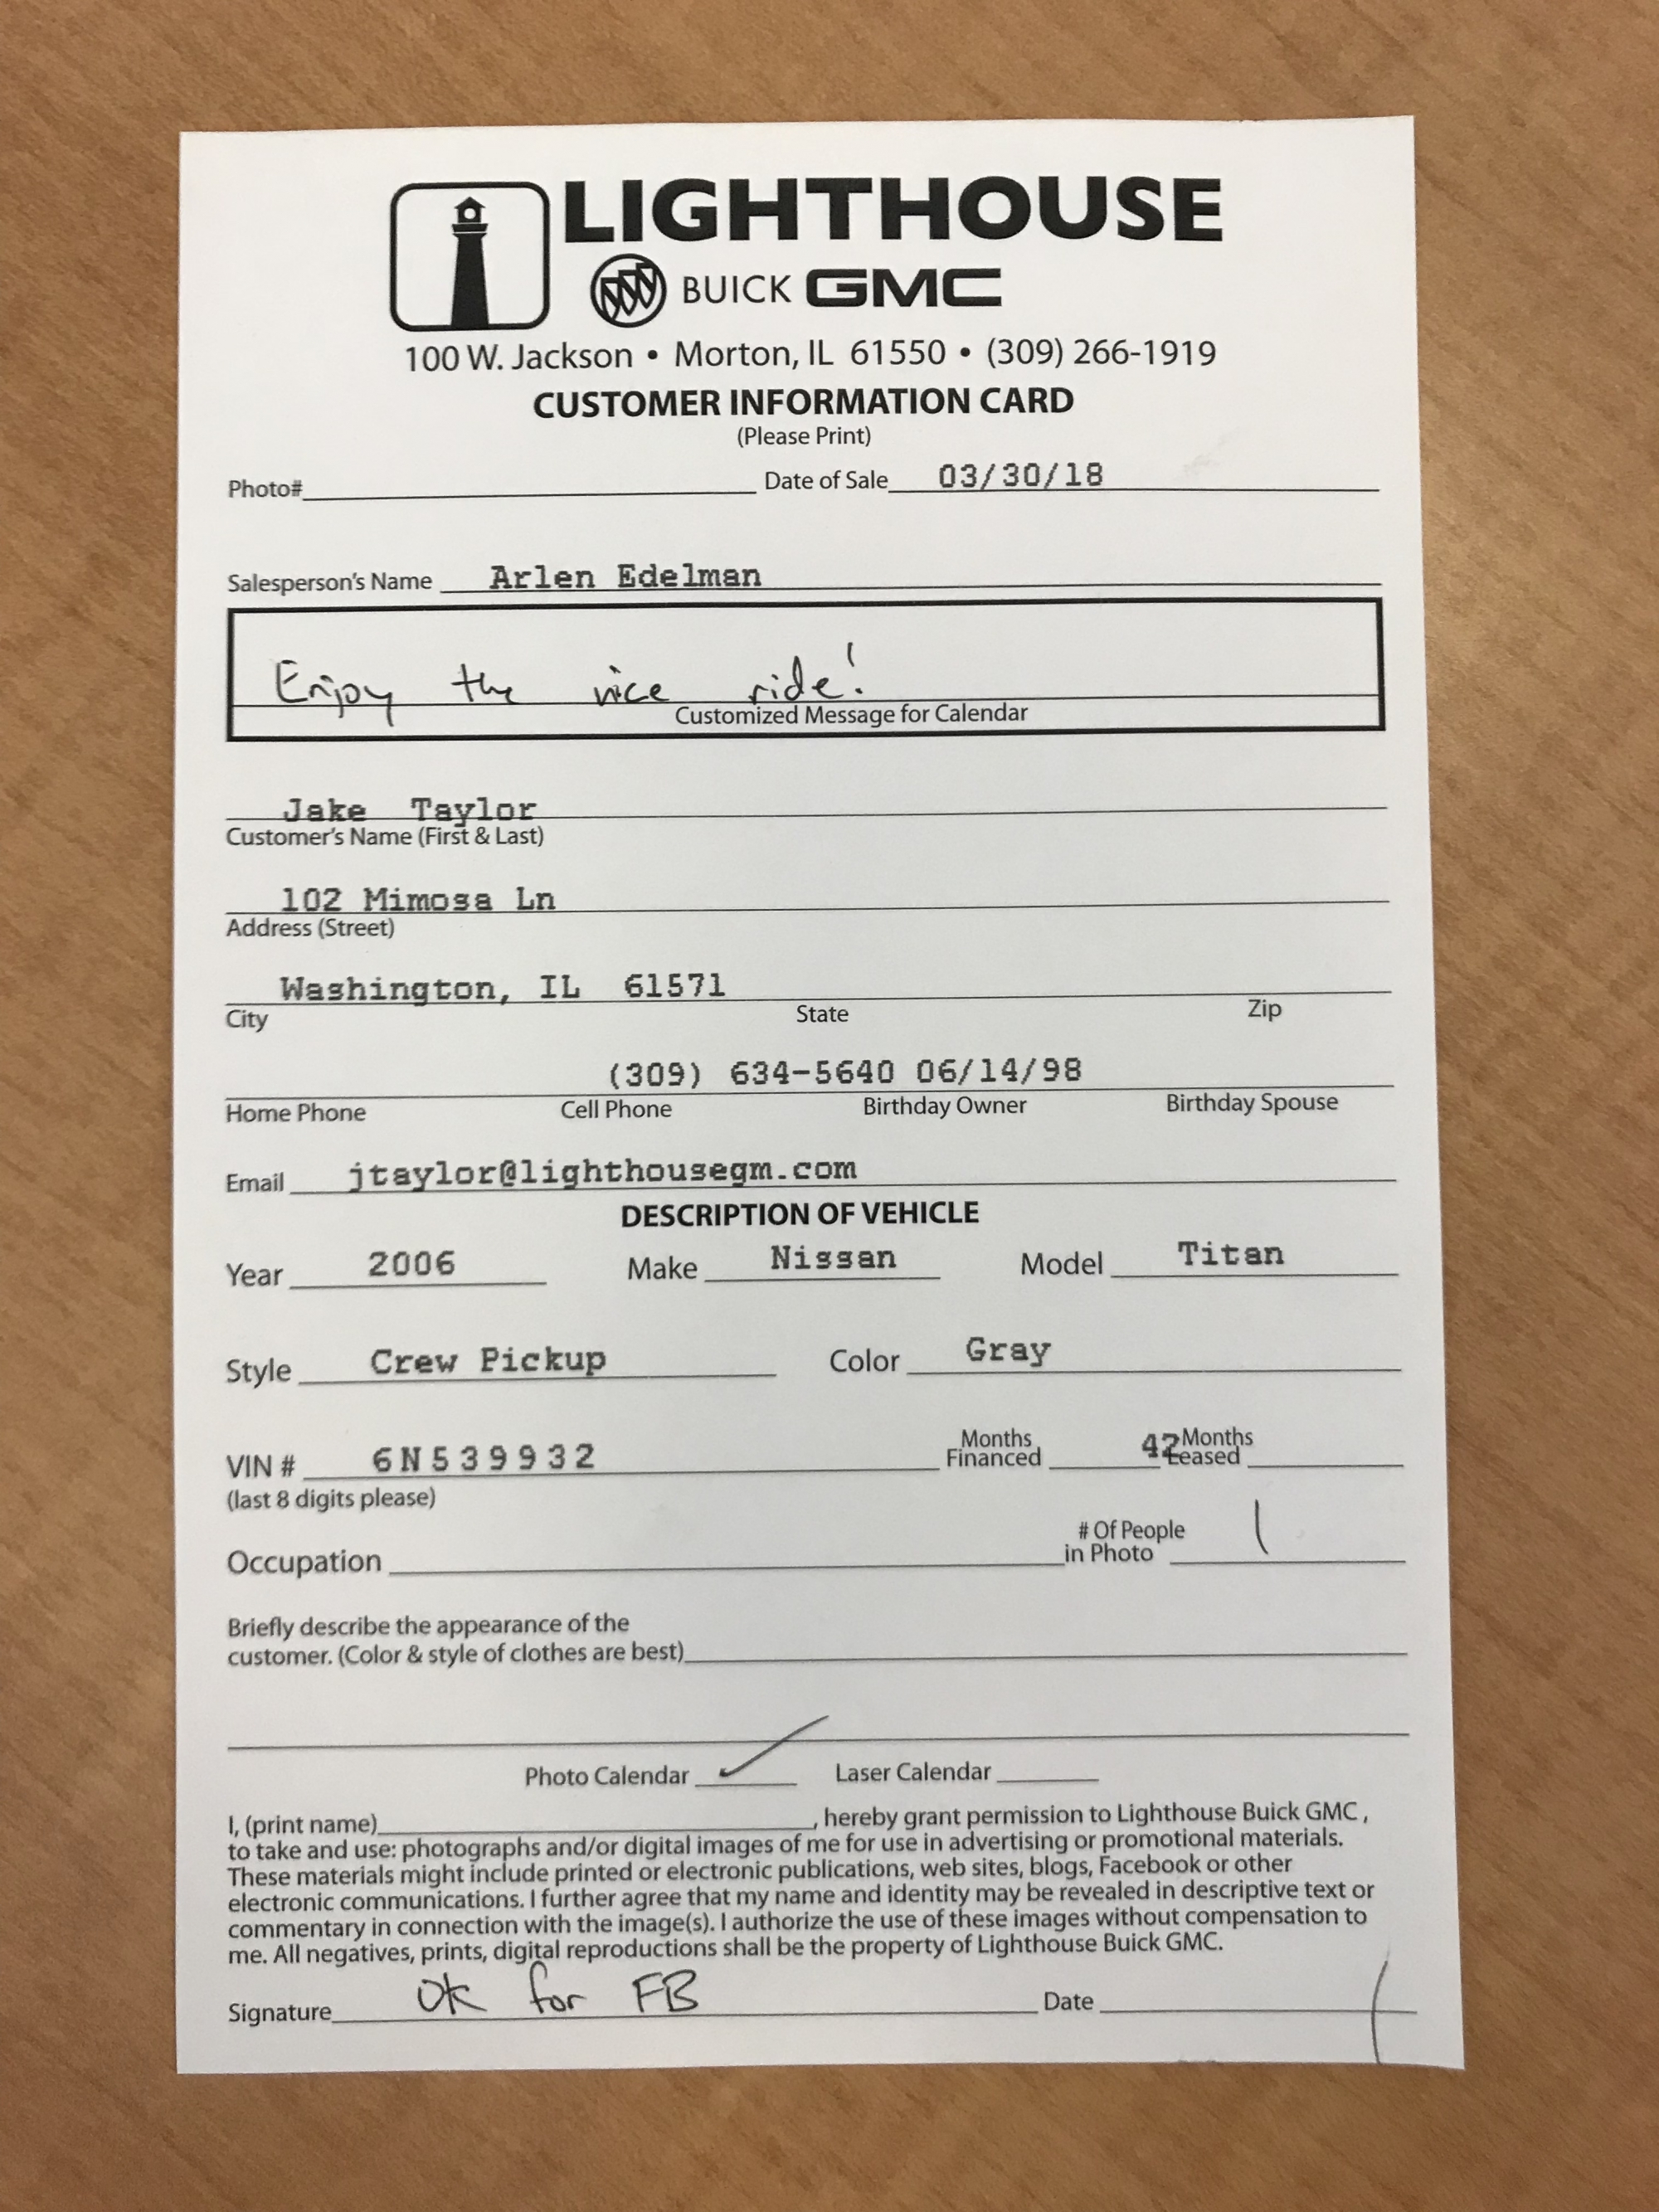 LIGHTHOUSE
BUICK GMC
100 W. Jackson • Morton, IL 61550 • (309) 266-1919
CUSTOMER INFORMATION CARD
(Please Print)
Photo# Date of Sale 03/30/18
Salesperson's Name Arlen Edelman
Enjoy the nice ride!
Customized Message for Calendar
Jake Taylor
Customer's Name (First & Last)
102 Mimosa Ln
Address (Street)
Washington, IL 61571
City State Zip
(309) 634-5640 06/14/98
Home Phone Cell Phone Birthday Owner Birthday Spouse
Email jtaylor@lighthousegm.com
DESCRIPTION OF VEHICLE
Year 2006 Make Nissan Model Titan
Style Crew Pickup Color Gray
VIN # 6N539932 Months Financed 42 Months Leased
(last 8 digits please)
Occupation # Of People in Photo 1
Briefly describe the appearance of the
customer. (Color & style of clothes are best)
Photo Calendar ✓ Laser Calendar
I, (print name) , hereby grant permission to Lighthouse Buick GMC ,
to take and use: photographs and/or digital images of me for use in advertising or promotional materials.
These materials might include printed or electronic publications, web sites, blogs, Facebook or other
electronic communications. I further agree that my name and identity may be revealed in descriptive text or
commentary in connection with the image(s). I authorize the use of these images without compensation to
me. All negatives, prints, digital reproductions shall be the property of Lighthouse Buick GMC.
Signature OK for FB Date